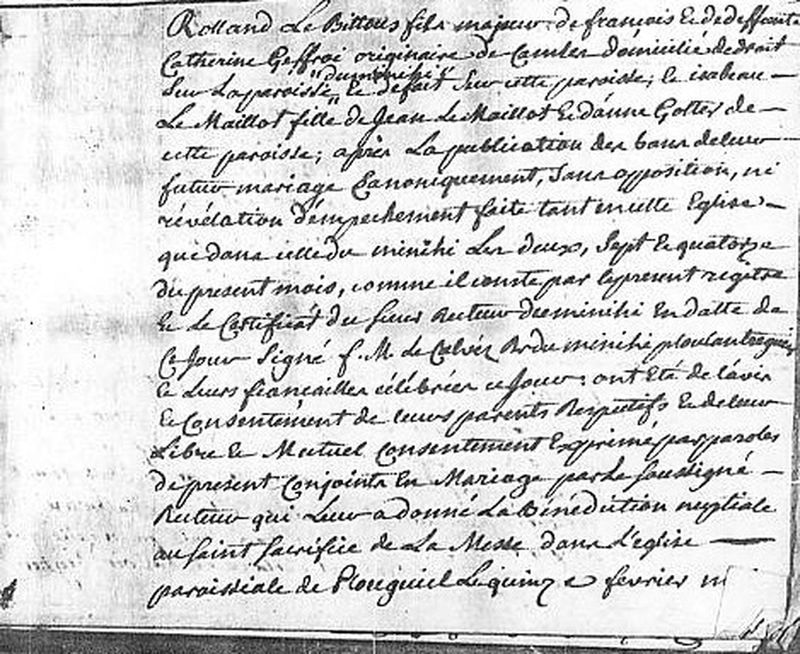 Rolland Le Bittous fils majeur de françois & de deffunte
Catherine Geffroi originaire de Camlez domicilié de droit
Sur La paroisse "du minihi" & de fait Sur cette paroisse; & isabeau —
Le Maillot fille de Jean Le Maillot & d'anne Gotter de —
cette paroisse; après La publication des bans de leur
futur mariage Canoniquement, Sans opposition, ni
révélation d'empechement faite tant en cette Eglise —
que dans celle du minihi Les deux, Sept & quatorze
du present mois, comme il conste par le present registre
& Le Certificat du Sieur Recteur du minihi En datte de
Ce Jour Signé f. M. Le Calvez Rr du minihi ploulantreguier
& Leurs fiancailles célébrées ce Jour: ont Eté de l'avis
& Consentement de leurs parents Respectifs & de leur
Libre & Mutuel Consentement Exprimé par paroles
de present Conjoints En Mariage par Le Soussigné —
Recteur qui Leur a donné La Bénédiction nuptiale
au Saint Sacrifice de La Messe dans L'eglise —
paroissiale de Plouguiel Le quinze fevrier